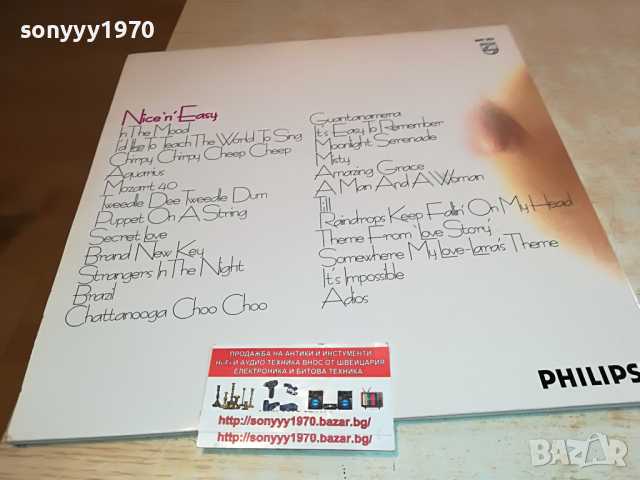 sonyyy1970
PHILIPS
Nice 'n' Easy
In The Mood
I'd Like To Teach The World To Sing
Chirpy Chirpy Cheep Cheep
Aquarius
Mozart 40
Tweedle Dee Tweedle Dum
Puppet On A String
Secret Love
Brand New Key
Strangers In The Night
Brazil
Chattanooga Choo Choo
Guantanamera
It's Easy To Remember
Moonlight Serenade
Misty
Amazing Grace
A Man And A Woman
Till
Raindrops Keep Fallin' On My Head
Theme From 'Love Story'
Somewhere My Love-Lara's Theme
It's Impossible
Adios
ПРОДАЖБА НА АНТИКИ И ИНСТУМЕНТИ
Hi-Fi И АУДИО ТЕХНИКА ВНОС ОТ ШВЕЙЦАРИЯ
ЕЛЕКТРОНИКА И БИТОВА ТЕХНИКА
http://sonyyy1970.bazar.bg/
http://sonyyy1970.bazar.bg/
PHILIPS
sonyyy1970
BAZAR.bg